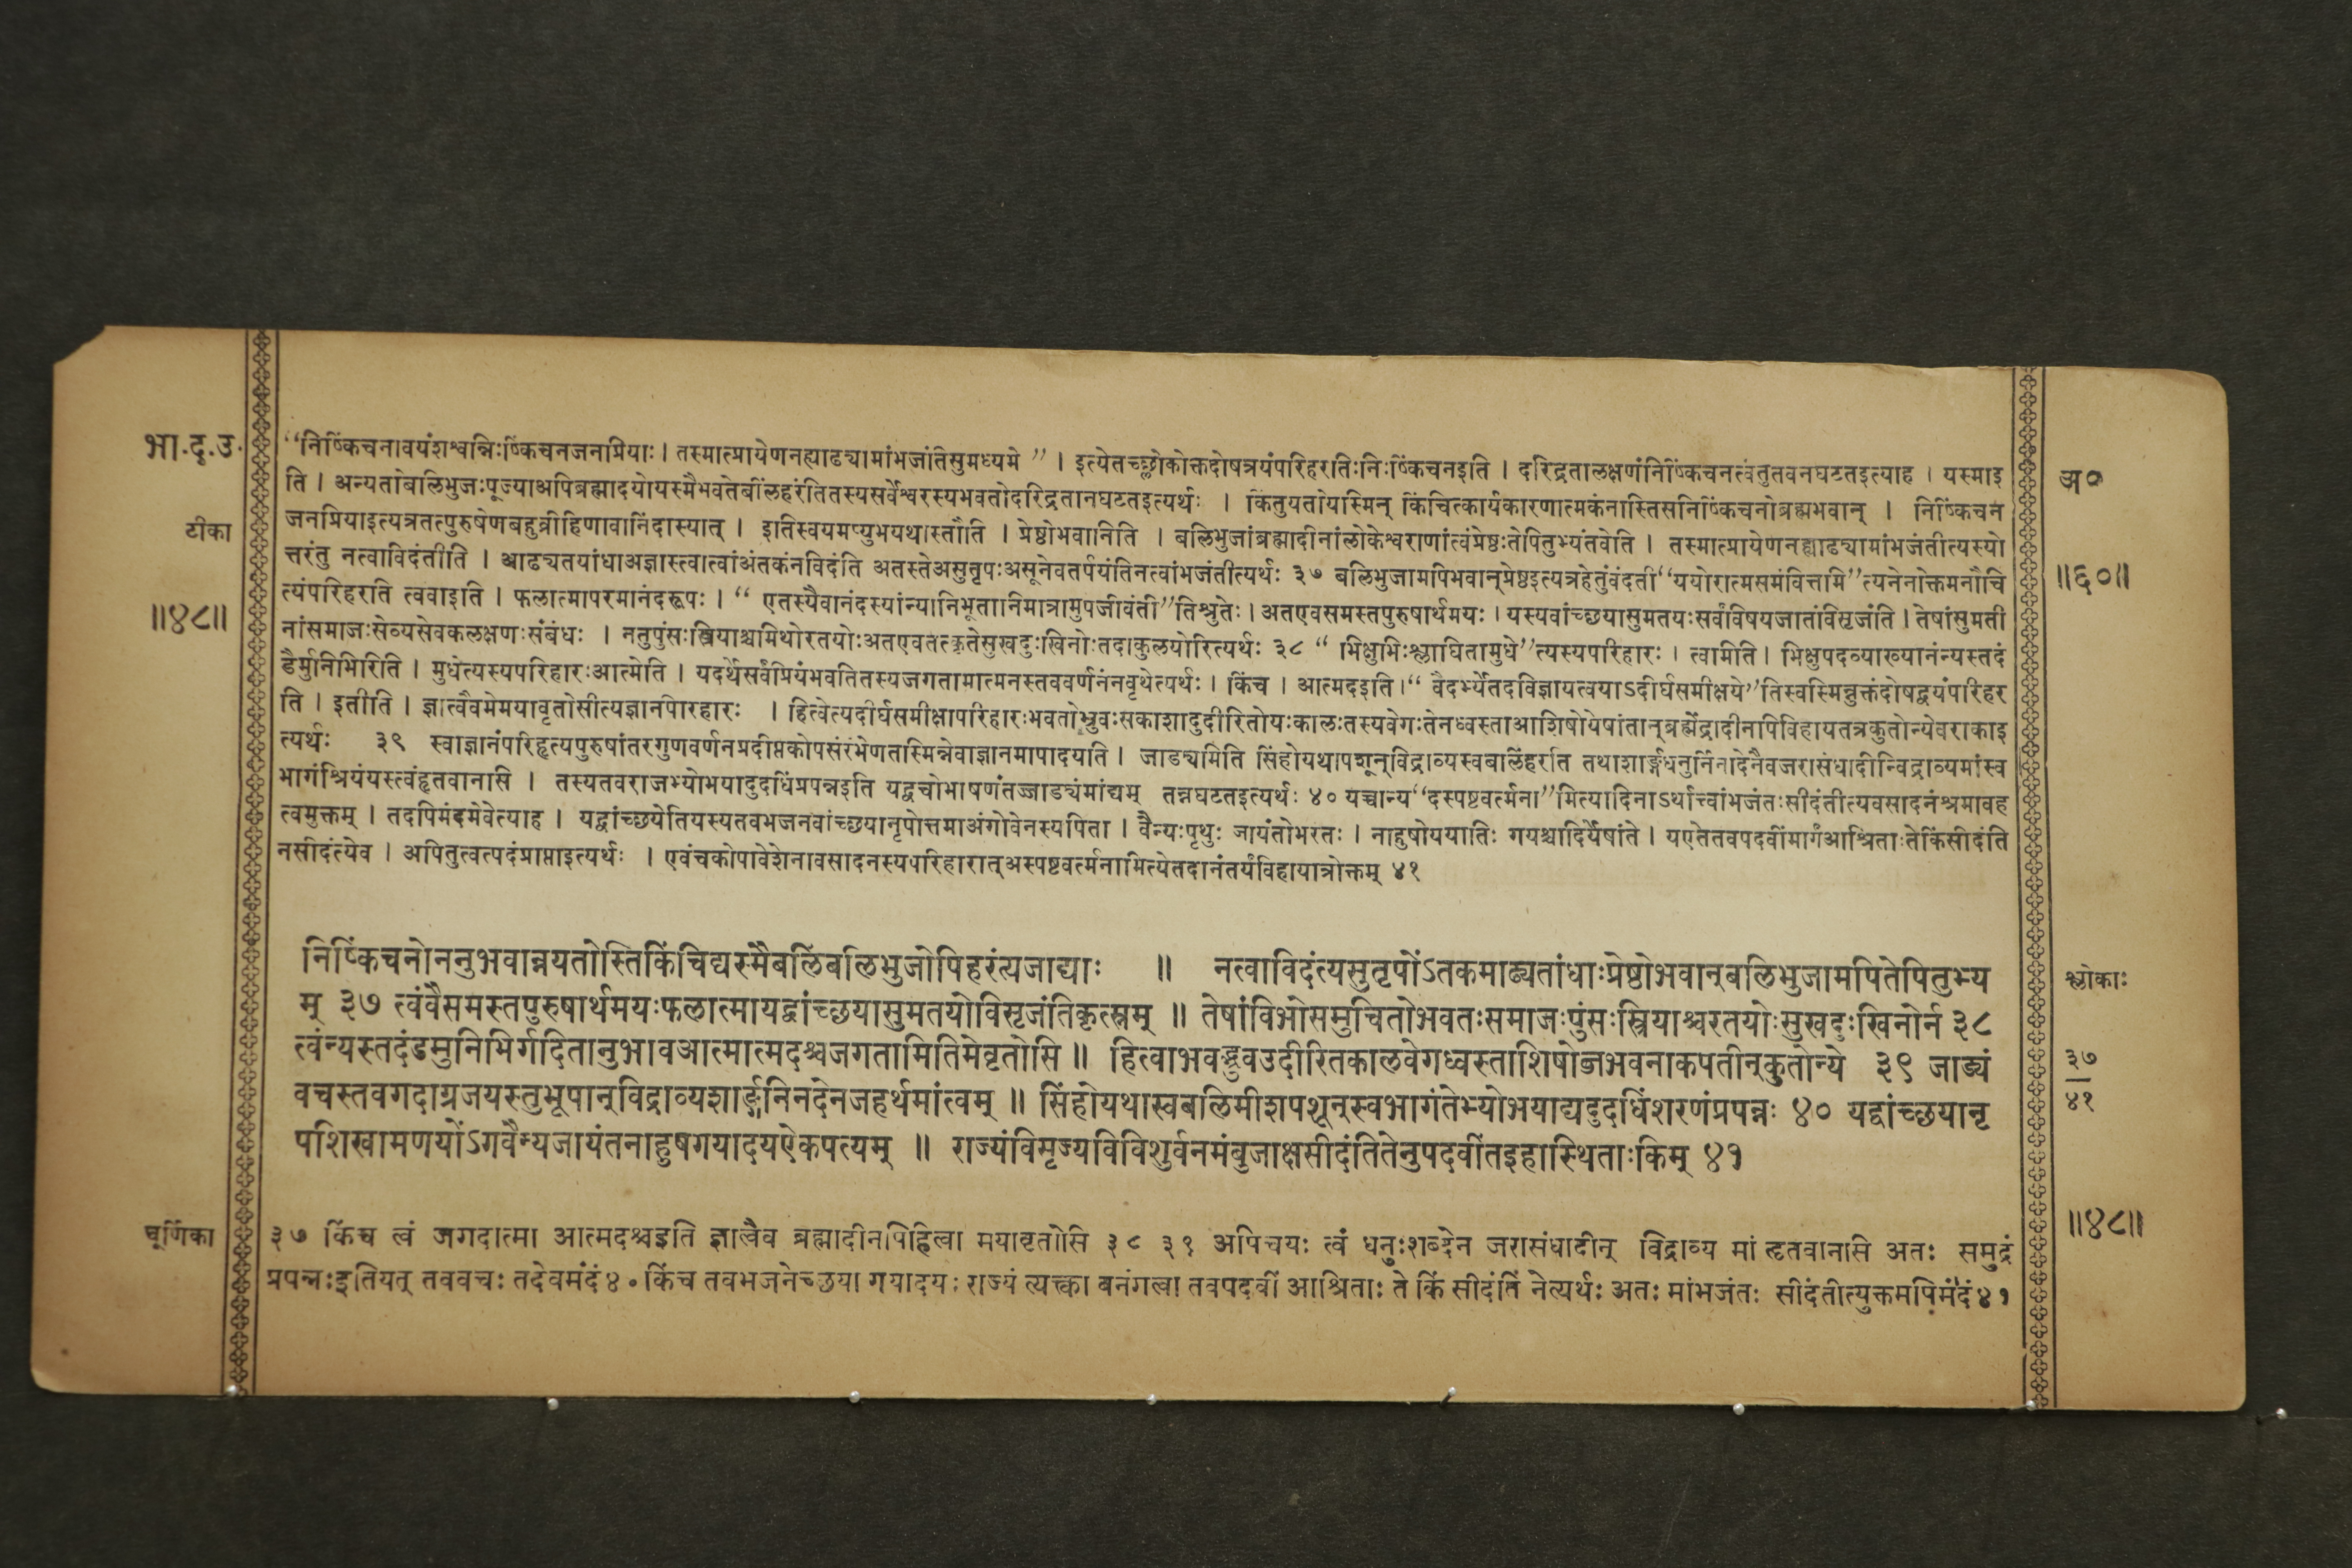 भा.द.उ.
“निष्किंचनावयंशश्वन्निःष्किंचनजनप्रियाः। तस्मात्प्रायेणनह्याढ्यामांभजंतिसुमध्यमे ” । इत्येतच्छ्लोकोक्तदोषत्रयंपरिहरतिःनिःष्किंचनइति । दरिद्रतालक्षणंनिष्किंचनत्वंतुतवनघटतइत्याह । यस्माइ
ति । अन्यतोबलिभुजःपूज्याअपिब्रह्मादयोयस्मैभवतेबलिंहरंतितस्यसर्वेश्वरस्यभवतोदरिद्रतानघटतइत्यर्थः । किंतुयतोयस्मिन् किंचित्कार्यकारणात्मकंनास्तिसनिष्किंचनोब्रह्मभवान् । निष्किंचन
अ०
टीका
जनप्रियाइत्यत्रतत्पुरुषेणबहुव्रीहिणावानिंदास्यात् । इतिस्वयमप्युभयथास्तौति । प्रेष्ठोभवानिति । बलिभुजांब्रह्मादीनांलोकेश्वराणांत्वंप्रेष्ठःतेपितुभ्यंतवेति । तस्मात्प्रायेणनह्याढ्यामांभजंतीत्यस्यो
त्तरंतु नत्वाविदंतीति । आढ्यतयांधाअज्ञास्त्वात्वांअंतकंनविदंति अतस्तेअसुतृपःअसूनेवतर्पयंतिनत्वांभजंतीत्यर्थः ३७ बलिभुजामपिभवान्प्रेष्ठइत्यत्रहेतुंवंदती“ययोरात्मसमंवित्तमि”त्यनेनोक्तमनौचि
॥६०॥
त्यंपरिहरति त्ववाइति । फलात्मापरमानंदरूपः । “ एतस्यैवानंदस्यांन्यानिभूतानिमात्रामुपजीवंती”तिश्रुतेः । अतएवसमस्तपुरुषार्थमयः । यस्यवांच्छयासुमतयःसर्वंविषयजातंविसृजंति । तेषांसुमती
॥४८॥
नांसमाजःसेव्यसेवकलक्षणःसंबंधः । नतुपुंसःस्त्रियाश्चमिथोरतयोःअतएवतत्कृतेसुखदुःखिनोःतदाकुलयोरित्यर्थः ३८ “ भिक्षुभिःश्लाघितामुधे”त्यस्यपरिहारः । त्वामिति । भिक्षुपदव्याख्यानंन्यस्तदं
डैर्मुनिभिरिति । मुधेत्यस्यपरिहारःआत्मेति । यदर्थेसर्वंप्रियंभवतितस्यजगतामात्मनस्तववर्णनंनवृथेत्यर्थः । किंच । आत्मदइति ।“ वैदर्भ्येतदविज्ञायत्वयाऽदीर्घसमीक्षये”तिस्वस्मिन्नुक्तंदोषद्वयंपरिहर
ति । इतीति । ज्ञात्वैवमेमयावृतोसीत्यज्ञानपरिहारः । हित्वेत्यदीर्घसमीक्षापरिहारःभवतोभ्रुवःसकाशादुदीरितोयःकालःतस्यवेगःतेनध्वस्ताआशिषोयेषांतान्ब्रह्मेंद्रादीनपिविहायतत्रकुतोन्येवराकाइ
त्यर्थः ३९ स्वाज्ञानंपरिहृत्यपुरुषांतरगुणवर्णनप्रदीप्तकोपसंरंभेणतस्मिन्नेवाज्ञानमापादयति । जाड्यमिति सिंहोयथापशून्विद्राव्यस्वबलिंहरति तथाशार्ङ्गधनुर्निनादेनैवजरासंधादीन्विद्राव्यमांस्व
भागंश्रियंयस्त्वंहृतवानासि । तस्यतवराजभ्योभयादुदधिंप्रपन्नइति यद्वचोभाषणंतज्जाड्यंमांद्यम् तन्नघटतइत्यर्थः ४० यच्चान्य“दस्पष्टवर्त्मना”मित्यादिनाऽर्थात्त्वांभजंतःसीदंतीत्यवसादनंश्रमावह
त्वमुक्तम् । तदपिमंदमेवेत्याह । यद्वांच्छयेतियस्यतवभजनवांच्छयानृपोत्तमाअंगोवेनस्यपिता । वैन्यःपृथुः जायंतोभरतः । नाहुषोययातिः गयश्चादिर्येषांते । यएतेतवपदवींमार्गंआश्रिताःतेकिंसीदंति
नसीदंत्येव । अपितुत्वत्पदंप्राप्ताइत्यर्थः । एवंचकोपावेशेनावसादनस्यपरिहारात्अस्पष्टवर्त्मनामित्येतदानंतर्यंविहायात्रोक्तम् ४१
निष्किंचनोननुभवान्नयतोस्तिकिंचिद्यस्मैबलिंबलिभुजोपिहरंत्यजाद्याः ॥ नत्वाविदंत्यसुतृपोंऽतकमाढ्यतांधाःप्रेष्ठोभवान्बलिभुजामपितेपितुभ्य
श्लोकाः
म् ३७ त्वंवैसमस्तपुरुषार्थमयःफलात्मायद्वांच्छयासुमतयोविसृजंतिकृत्स्नम् ॥ तेषांविभोसमुचितोभवतःसमाजःपुंसःस्त्रियाश्चरतयोःसुखदुःखिनोर्न ३८
त्वंन्यस्तदंडमुनिभिर्गदितानुभावआत्मात्मदश्चजगतामितिमेवृतोसि ॥ हित्वाभवद्भ्रुवउदीरितकालवेगध्वस्ताशिषोब्जभवनाकपतीन्कुतोन्ये ३९ जाड्यं
३७
वचस्तवगदाग्रजयस्तुभूपान्विद्राव्यशार्ङ्गनिनदेनजहर्थमांत्वम् ॥ सिंहोयथास्वबलिमीशपशून्स्वभागंतेभ्योभयाद्यदुदधिंशरणंप्रपन्नः ४० यद्वांच्छयानृ
४१
पशिखामणयोंऽगवैन्यजायंतनाहुषगयादयऐकपत्यम् ॥ राज्यंविमृज्यविविशुर्वनमंबुजाक्षसीदंतितेनुपदवींतइहास्थिताःकिम् ४१
॥४८॥
चूर्णिका
३७ किंच त्वं जगदात्मा आत्मदश्चइति ज्ञात्वैव ब्रह्मादीनपिहित्वा मयावृतोसि ३८ ३९ अपिचयः त्वं धनुःशब्देन जरासंधादीन् विद्राव्य मां हृतवानासि अतः समुद्रं
प्रपन्नःइतियत् तववचः तदेवमंदं४० किंच तवभजनेच्छया गयादयः राज्यं त्यक्त्वा वनंगत्वा तवपदवीं आश्रिताः ते किं सीदंति नेत्यर्थः अतः मांभजंतः सीदंतीत्युक्तमपिमंदं४१